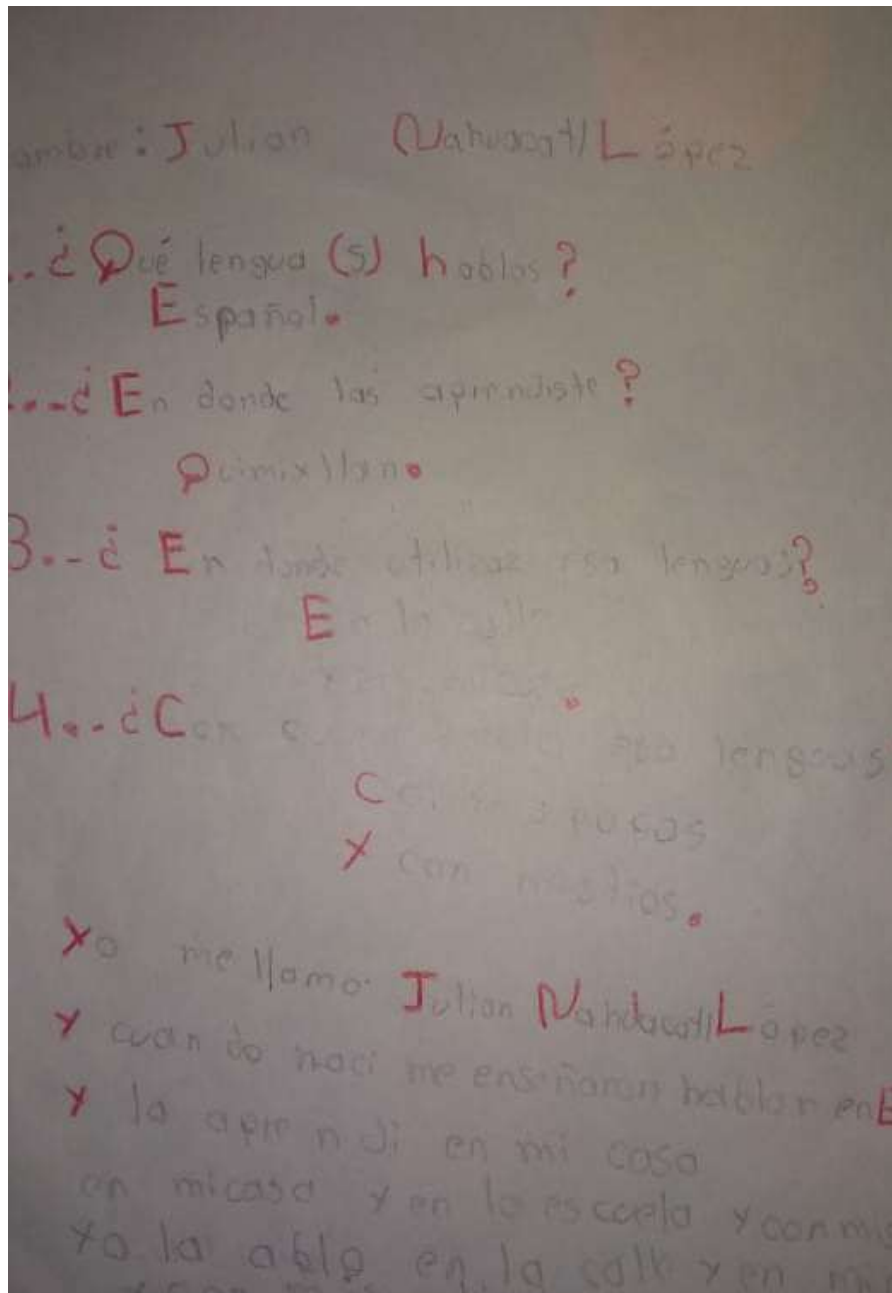 ombre: Julian Nahuacatl López
..¿Qué lengua (s) hablas?
Español.
..-¿En donde las aprendiste?
Quimixtlan.
3..-¿En donde utilizas esa lenguas?
En la calle
4..-¿Con esa lenguas
Con
Y con mis tios.
Yo me llamo Julian Nahuacatl López
Y cuando naci me enseñaron hablar en E
Y la aprendi en mi casa
en mi casa y en la escuela y con mis
Yo la ablo en la calle y en mi